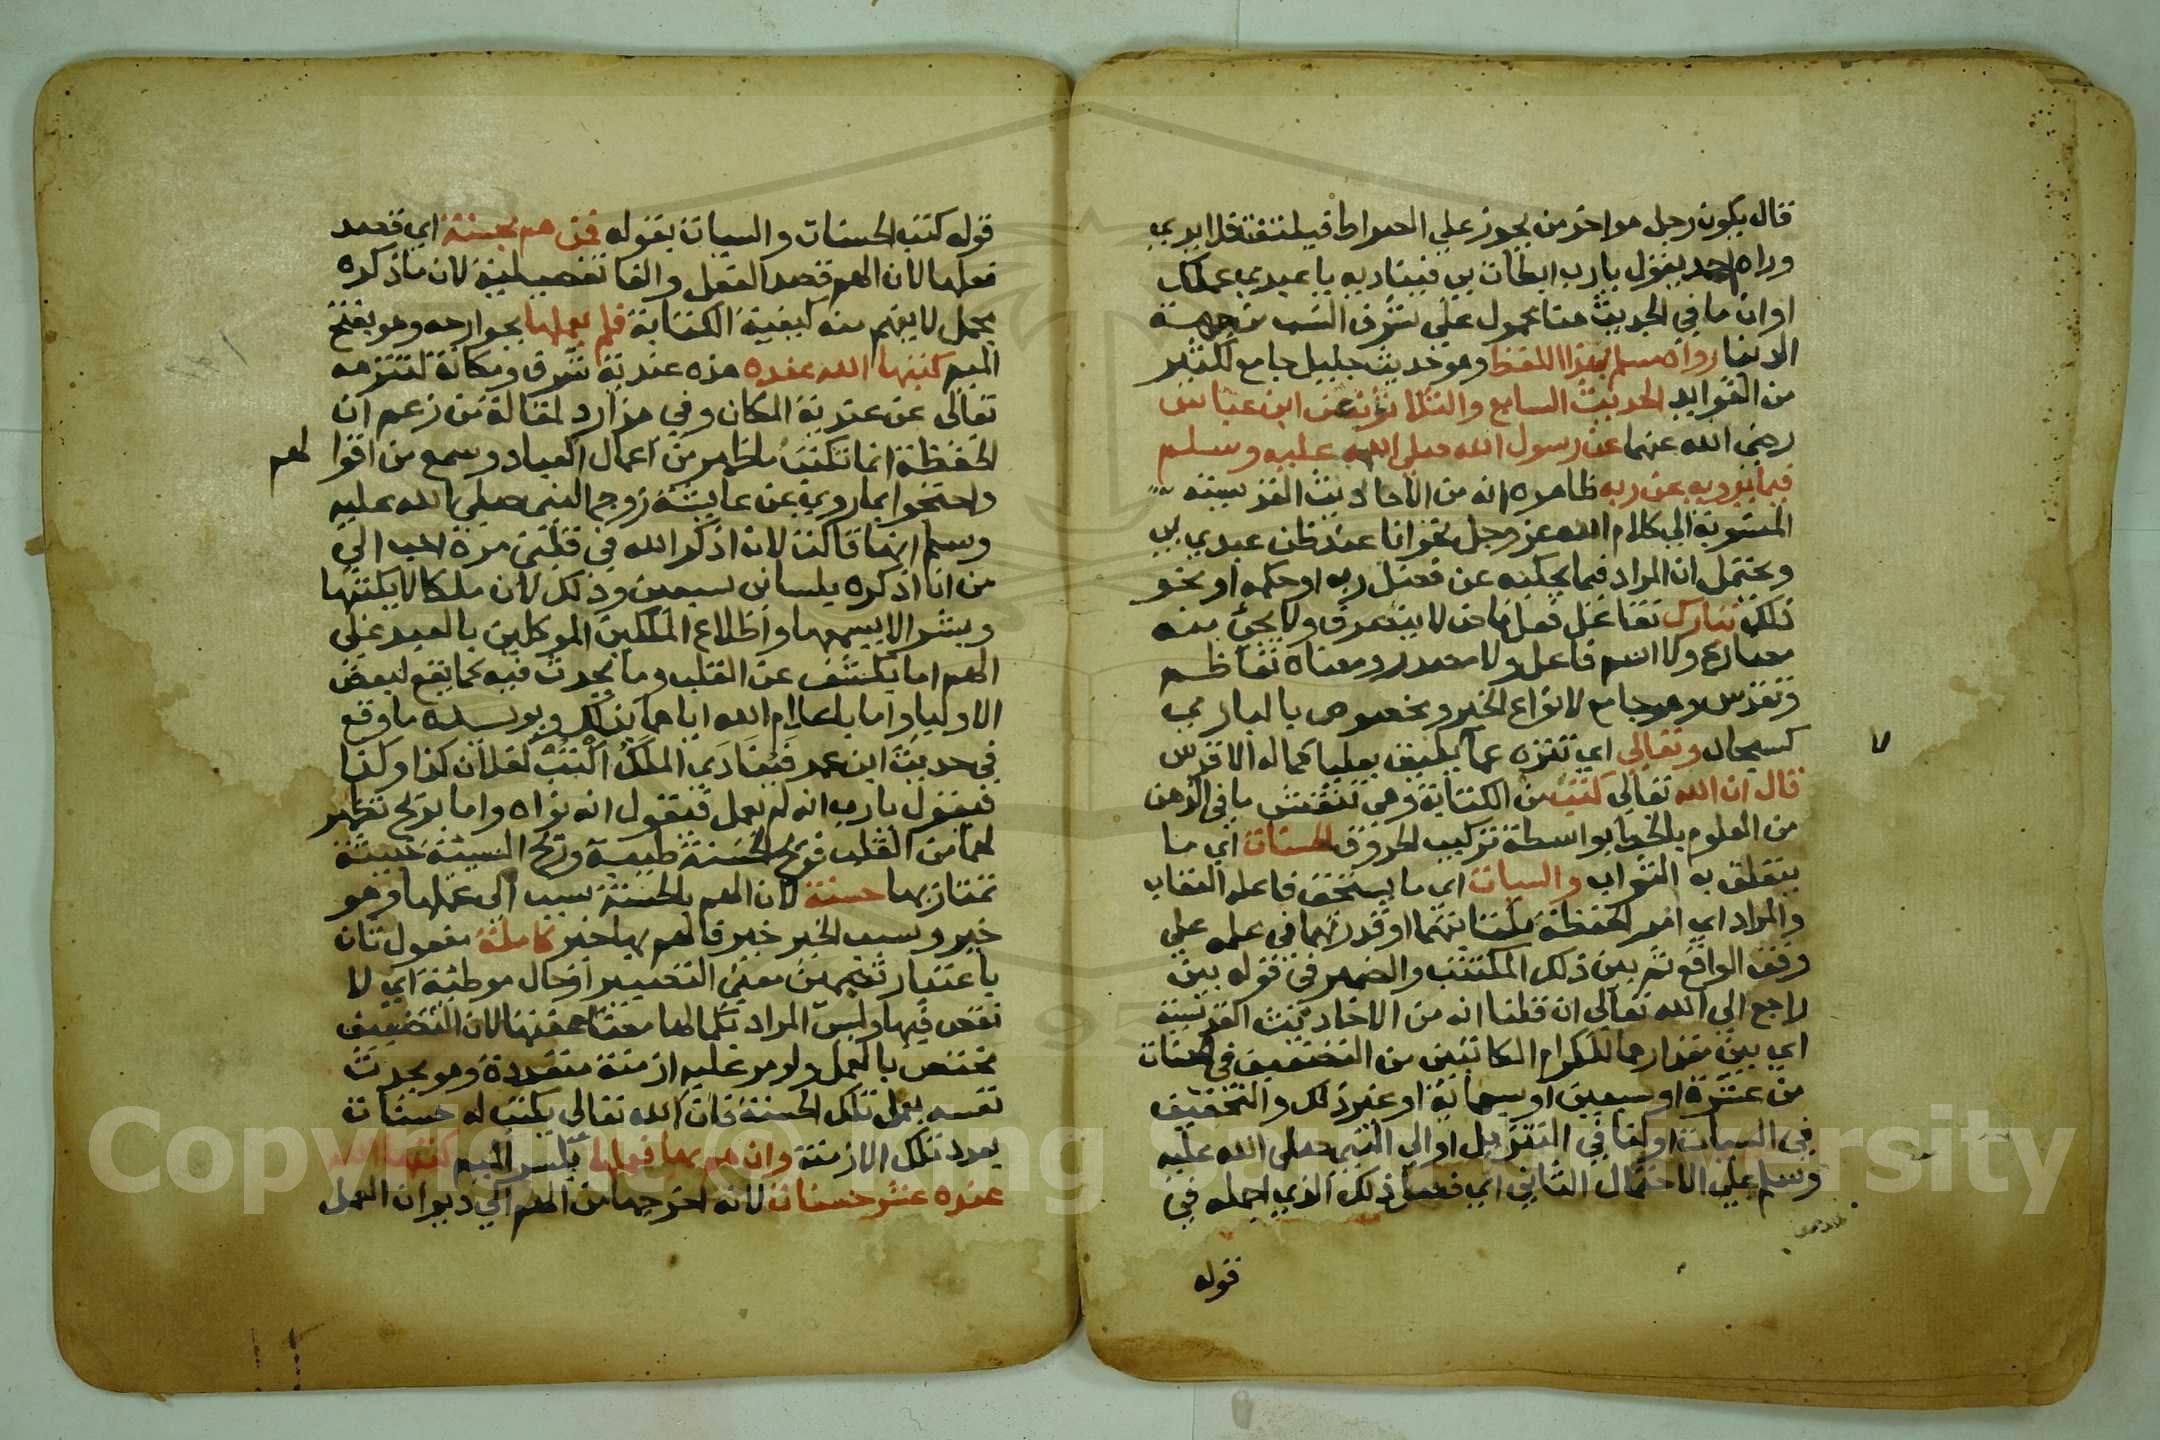 قال يكون رجل هو اخر من يجوز علي الصراط فيلتفت فلا يري
وراه احد يقول يا رب ابطات بي فيناديه يا عبدي عملك
او ان ما في الحديث هنا محمول علي شرف النسب من جهة
الدنيا رواه مسلم بهذا اللفظ وهو حديث جليل جامع لكثير
من الفوايد الحديث السابع والثلاثون عن ابن عباس
رضي الله عنهما عن رسول الله صلي الله عليه وسلم
فيما يرويه عن ربه ظاهره انه من الاحاديث القدسية
المنسوبة الي كلام الله عز وجل نحو انا عند ظن عبدي بي
ويحتمل ان المراد فيما يحكيه عن فضل ربه او حكمه او نحو
ذلك تبارك تفاعل فعل ماض لا يتصرف ولا يجئ منه
مضارع ولا اسم فاعل ولا مصدر ومعناه تعاظم
وتقدس وهو جامع لانواع الخير ومخصوص بالباري
كسبحان وتعالي اي تنزه عما لا يليق بعليا كماله الاقدس
قال ان الله تعالي كتب من الكتابة وهي تنقش ما في الذهن
من العلوم بالخط بواسطة تركيب الحروف الحسنات اي ما
يتعلق به الثواب والسيات اي ما يستحق فاعله العقاب
والمراد اي امر الحفظة بكتابتهما او قدرهما في علمه علي
وفق الواقع ثم بين ذلك المكتتب والضمير في قوله بين
راجع الي الله تعالي ان قلنا انه من الاحاديث القدسية
اي بين مقدارهما للكرام الكاتبين من التضعيف في الحسنات
من عشرة او سبعين او سبعمائة او غير ذلك والتخفيف
في السيات او كتبا في التنزيل او الي النبي صلي الله عليه
وسلم علي الاحتمال الثاني اي فصل ذلك الذي اجمله في
قوله
قوله كتب الحسنات والسيات بقوله فمن هم بحسنة اي قصد
فعلها لان الهم قصد الفعل والفا تفصيلية لان ما ذكره
مجمل لا يفهم منه كيفية الكتابة فلم يعملها بجوارحه وهو بفتح
الميم كتبها الله عنده هذه عندية شرف ومكانة لتنزهه
تعالي عن عندية المكان وفي هذا رد لمقالة من زعم ان
الحفظة انما تكتب ما ظهر من اعمال العباد وسمع من اقوالهم
واحتجوا بما روي عن عايشة زوج النبي صلي الله عليه
وسلم انها قالت لان اذكر الله في قلبي مرة احب الي
من ان اذكره بلساني سبعين وذلك لان ملكا لا يكتبها
وبشرا لا يسمعها واطلاع الملكين الموكلين بالعبد علي
الهم اما بكشف عن القلب وما يحدث فيه كما يقع لبعض
الاوليا واما باعلام الله اياهما بذلك ويويده ما وقع
في حديث ابن عمر فينادي الملك اكتب لفلان كذا وكذا
فيقول يا رب انه لم يعمل فيقول انه نواه واما بريح تظهر
لهما من القلب فريح الحسنة طيبة وريح السيئة خبيثة
تمتاز بها حسنة لان الهم بالحسنة سبب الي عملها وهو
خير وسبب الخير خير فالهم بها خير كاملة مفعول ثان
باعتبار تضمين معني التصيير او حال موطئة اي لا
نقص فيها وليس المراد بكمالها مضاعفتها لان التضعيف
مختص بالعمل ولو مر عليه ازمنة متعددة وهو يحدث
نفسه بعمل تلك الحسنة فان الله تعالي يكتب له حسنات
بعدد تلك الازمنة وان هم بها فعملها بكسر الميم كتبها الله
عنده عشر حسنات لانه اخرجها من الهم الي ديوان العمل
Copyright © King Saud University